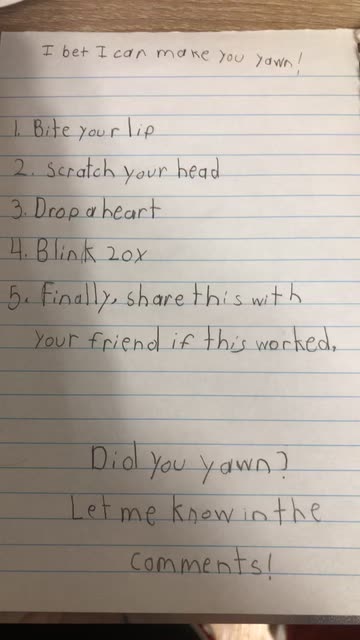 I bet I can make you yawn!
1. Bite your lip
2. Scratch your head
3. Drop a heart
4. Blink 20x
5. Finally, share this with
your friend if this worked.
Did you yawn?
Let me know in the
comments!